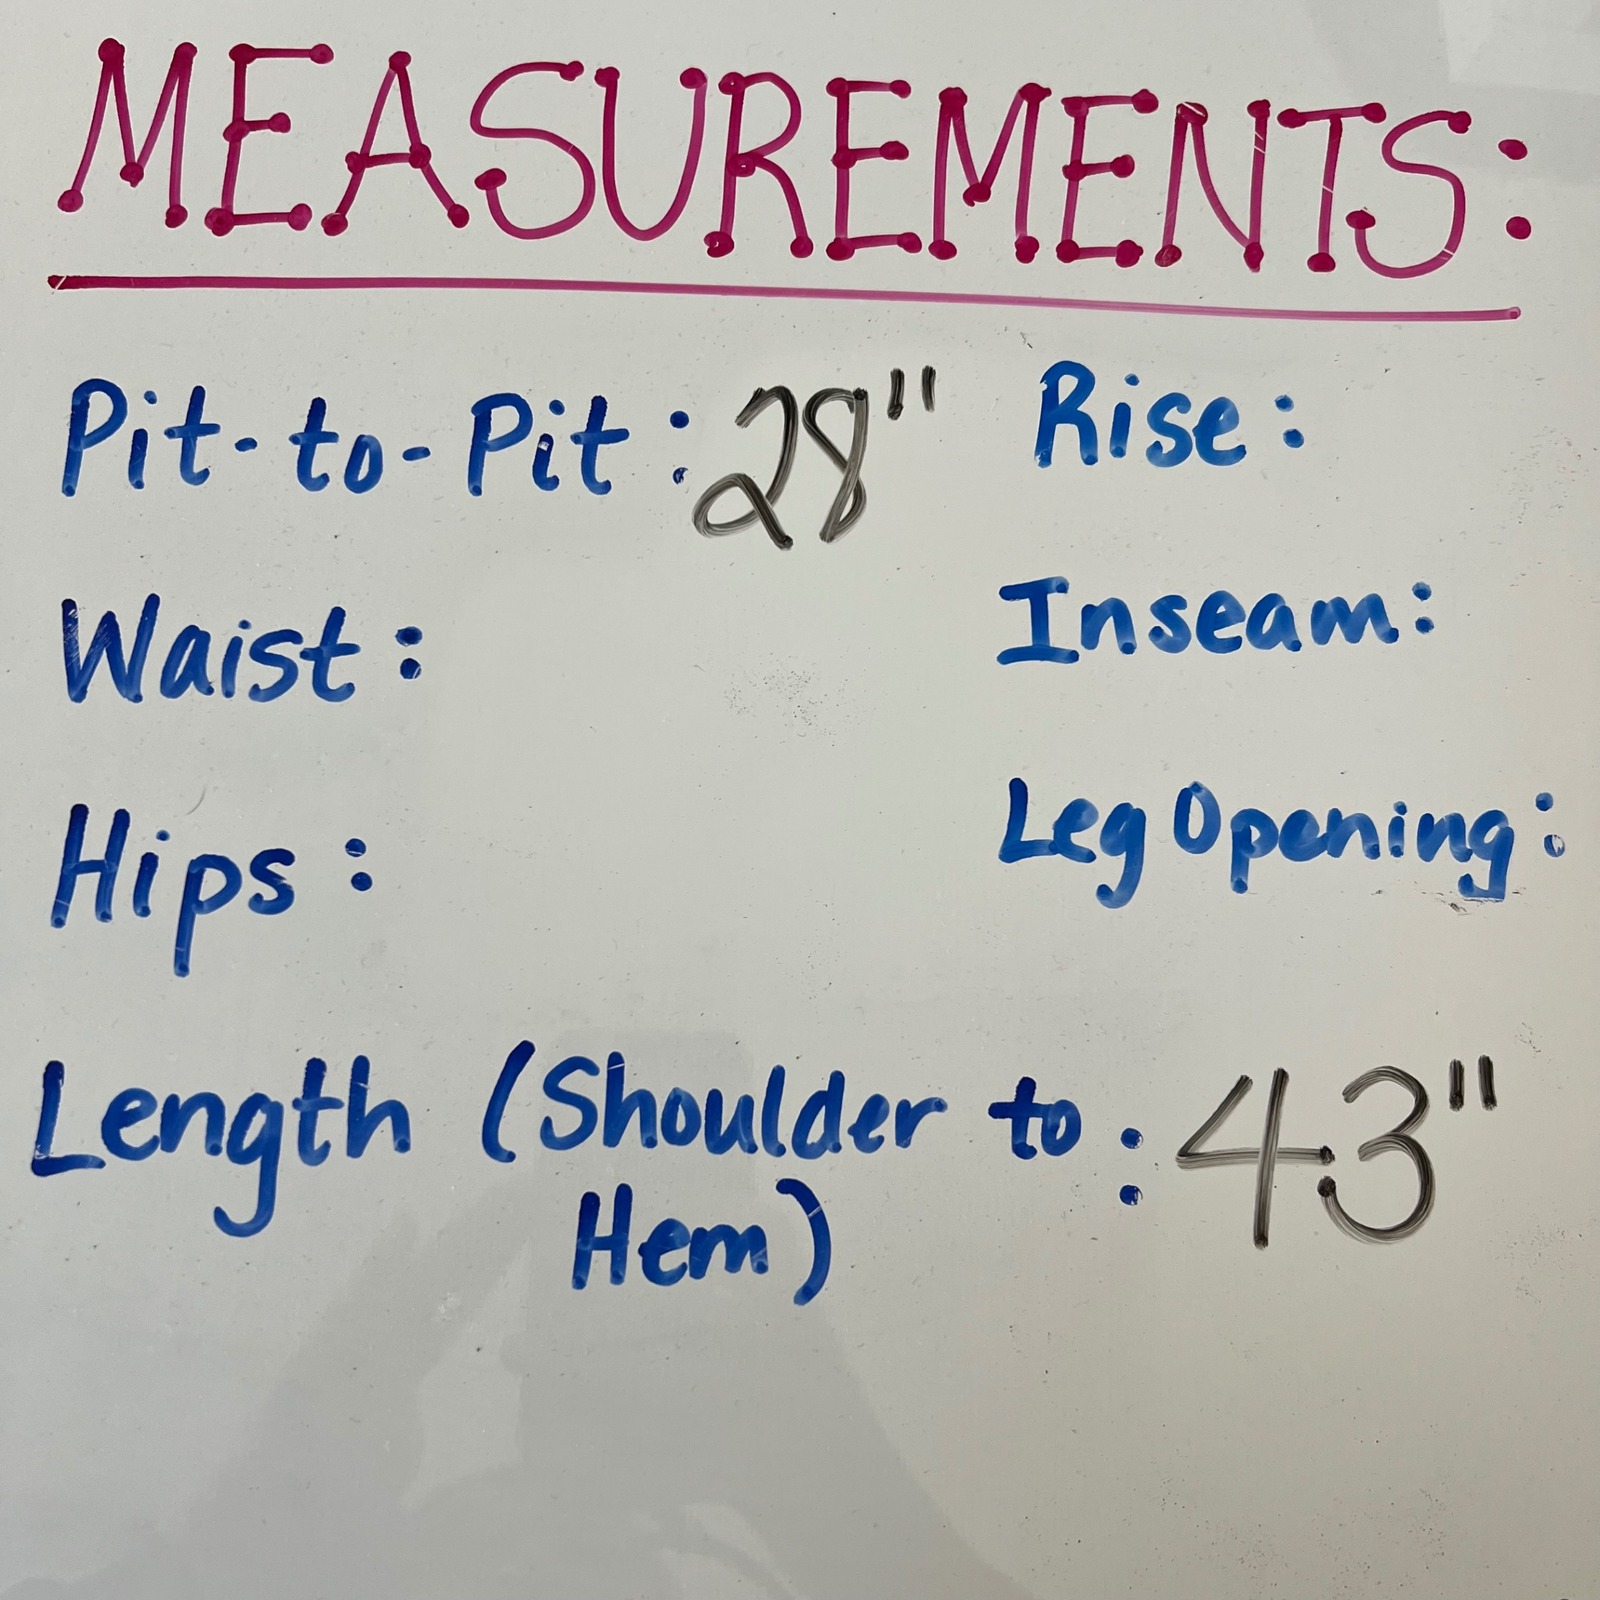 MEASUREMENTS:
Pit-to-Pit: 28" Rise:
Waist: Inseam:
Hips: Leg Opening:
Length (Shoulder to : 43"
Hem)